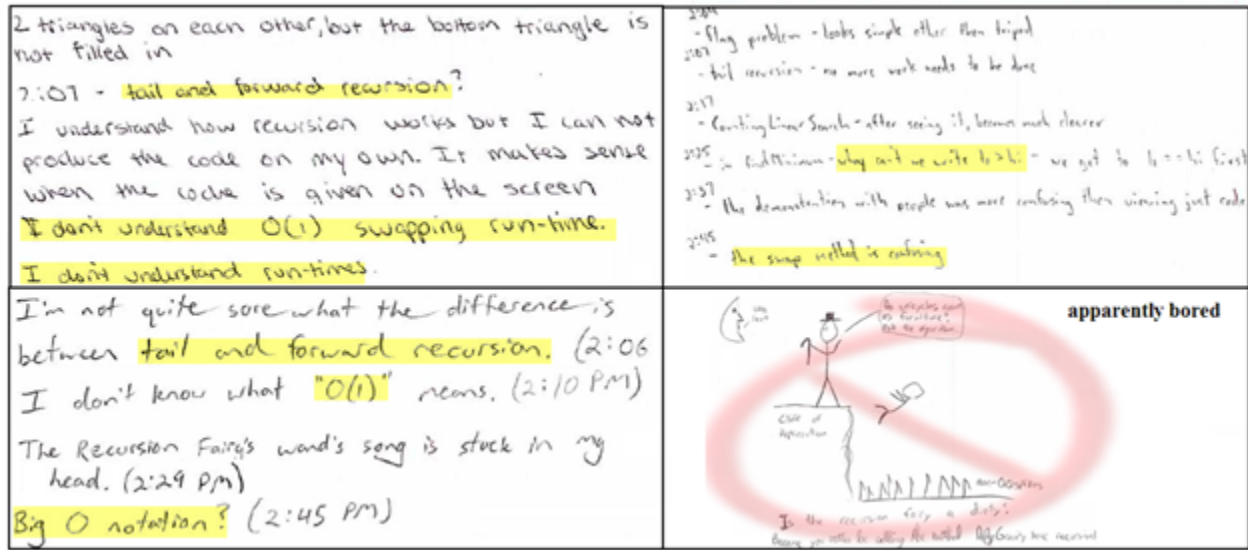 2 triangles on each other, but the bottom triangle is
not filled in
2:07 - tail and forward recursion?
I understand how recursion works but I can not
produce the code on my own. It makes sense
when the code is given on the screen
I don't understand O(1) swapping run-time.
I don't understand run-times.
2:04
- flag problem - looks simple other then tripod
2:07
- tail recursion - no more work needs to be done
2:17
- Counting Linear Search - after seeing it, becomes much clearer
2:25
- in findMinimum - why can't we write lo > hi - we get to lo == hi first
2:37
- The demonstration with people was more confusing then viewing just code
2:45
- the swap method is confusing
I'm not quite sure what the difference is
between tail and forward recursion. (2:06
I don't know what "O(1)" means. (2:10 PM)
The Recursion Fairy's wand's song is stuck in my
head. (2:29 PM)
Big O notation? (2:45 PM)
apparently bored
as furniture?
Cliff of
Is the recursion fairy a